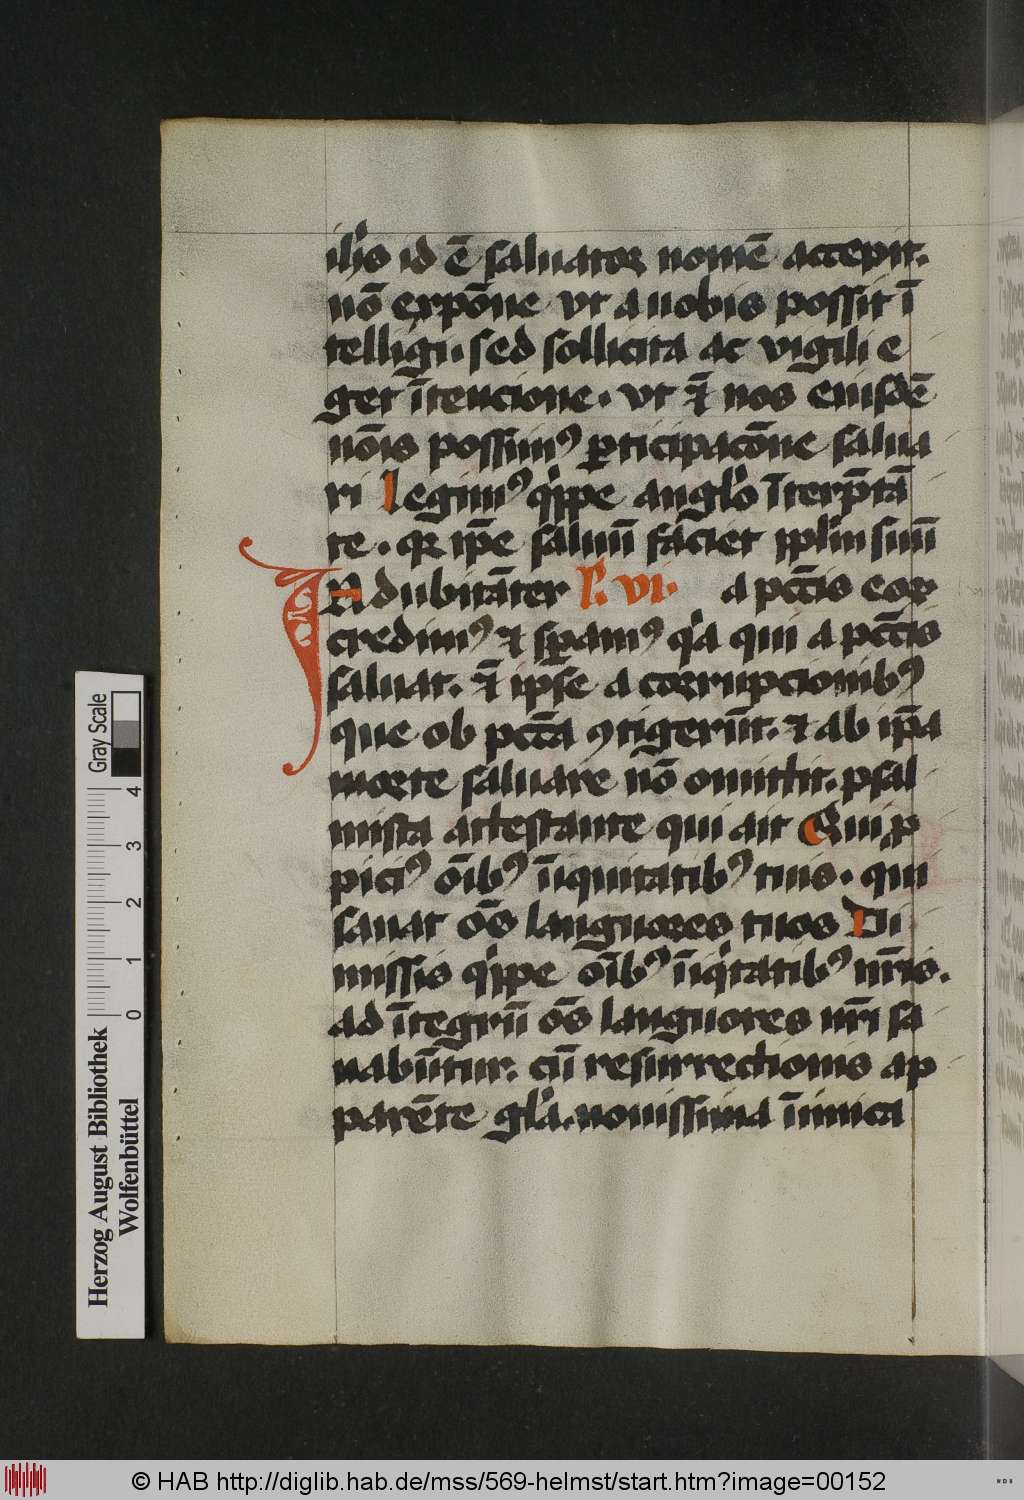 ihs id ē saluator nomē accepit.
nō exposne vt a nobis possit ī
telligi. sed sollicita ac vigili e
get ītencione. vt ⁊ nos eiusdē
nōis possimꝰ ꝑticipacōne salua
ri Legimꝰ qͥppe anglo īterp̄tā
te. qꝛ ip̄e saluū faciet pplm suū
IN dubitāter lc̄. vi. a pcc̄is eoꝝ
credimꝰ ⁊ speramꝰ qͥa qui a pcc̄is
saluat. ⁊ ipse a corrupcionibꝰ
que ob pcc̄a ꝯtigerūt. ⁊ ab ip̄a
morte saluare nō omittit. psal
mista attestante qui ait Qui ꝓ
piciꝰ oībꝰ īiquitatibꝰ tuis. qui
sanat oēs languores tuos Di
missis qͥppe oībꝰ īiqͥtatibꝰ nr̄is.
ad ītegrū oēs languores nr̄i sa
nabūtur. cū resurrectionis ap
parēte glͥa. nouissima īimica
Herzog August Bibliothek
Wolfenbüttel
0 1 2 3 4
Gray Scale
© HAB http://diglib.hab.de/mss/569-helmst/start.htm?image=00152